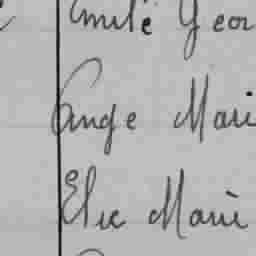 Emile Geor
Ange Mari
Elie Marie